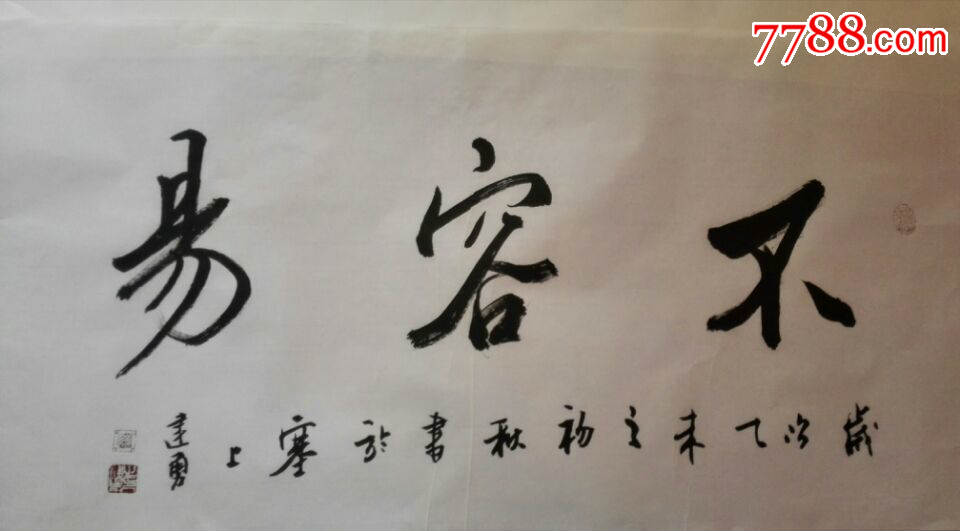 7788.com
不容易
歲次乙未之初秋書於塞上
建勇